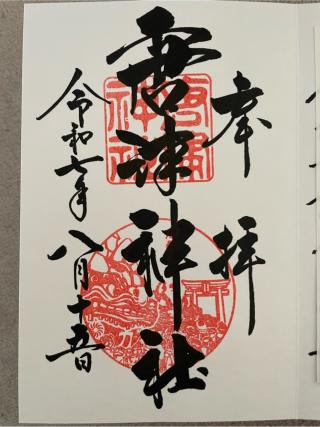 奉拝
唐津神社
令和七年八月十五日
唐津
神社